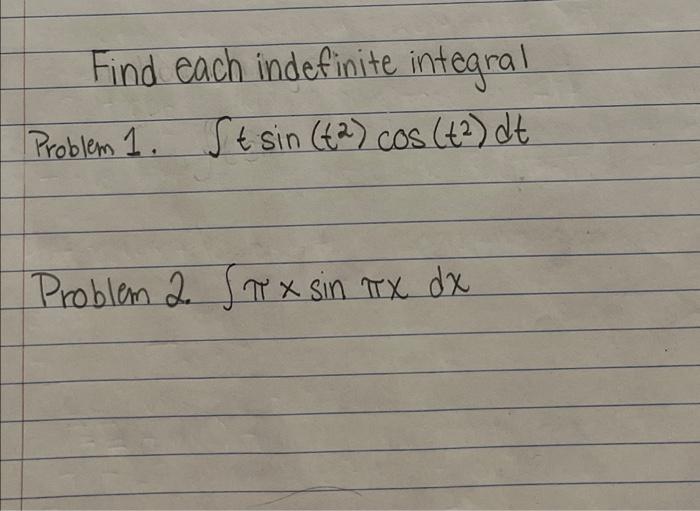 Find each indefinite integral
Problem 1. ∫ t sin (t²) cos (t²) dt
Problem 2. ∫ π x sin πx dx